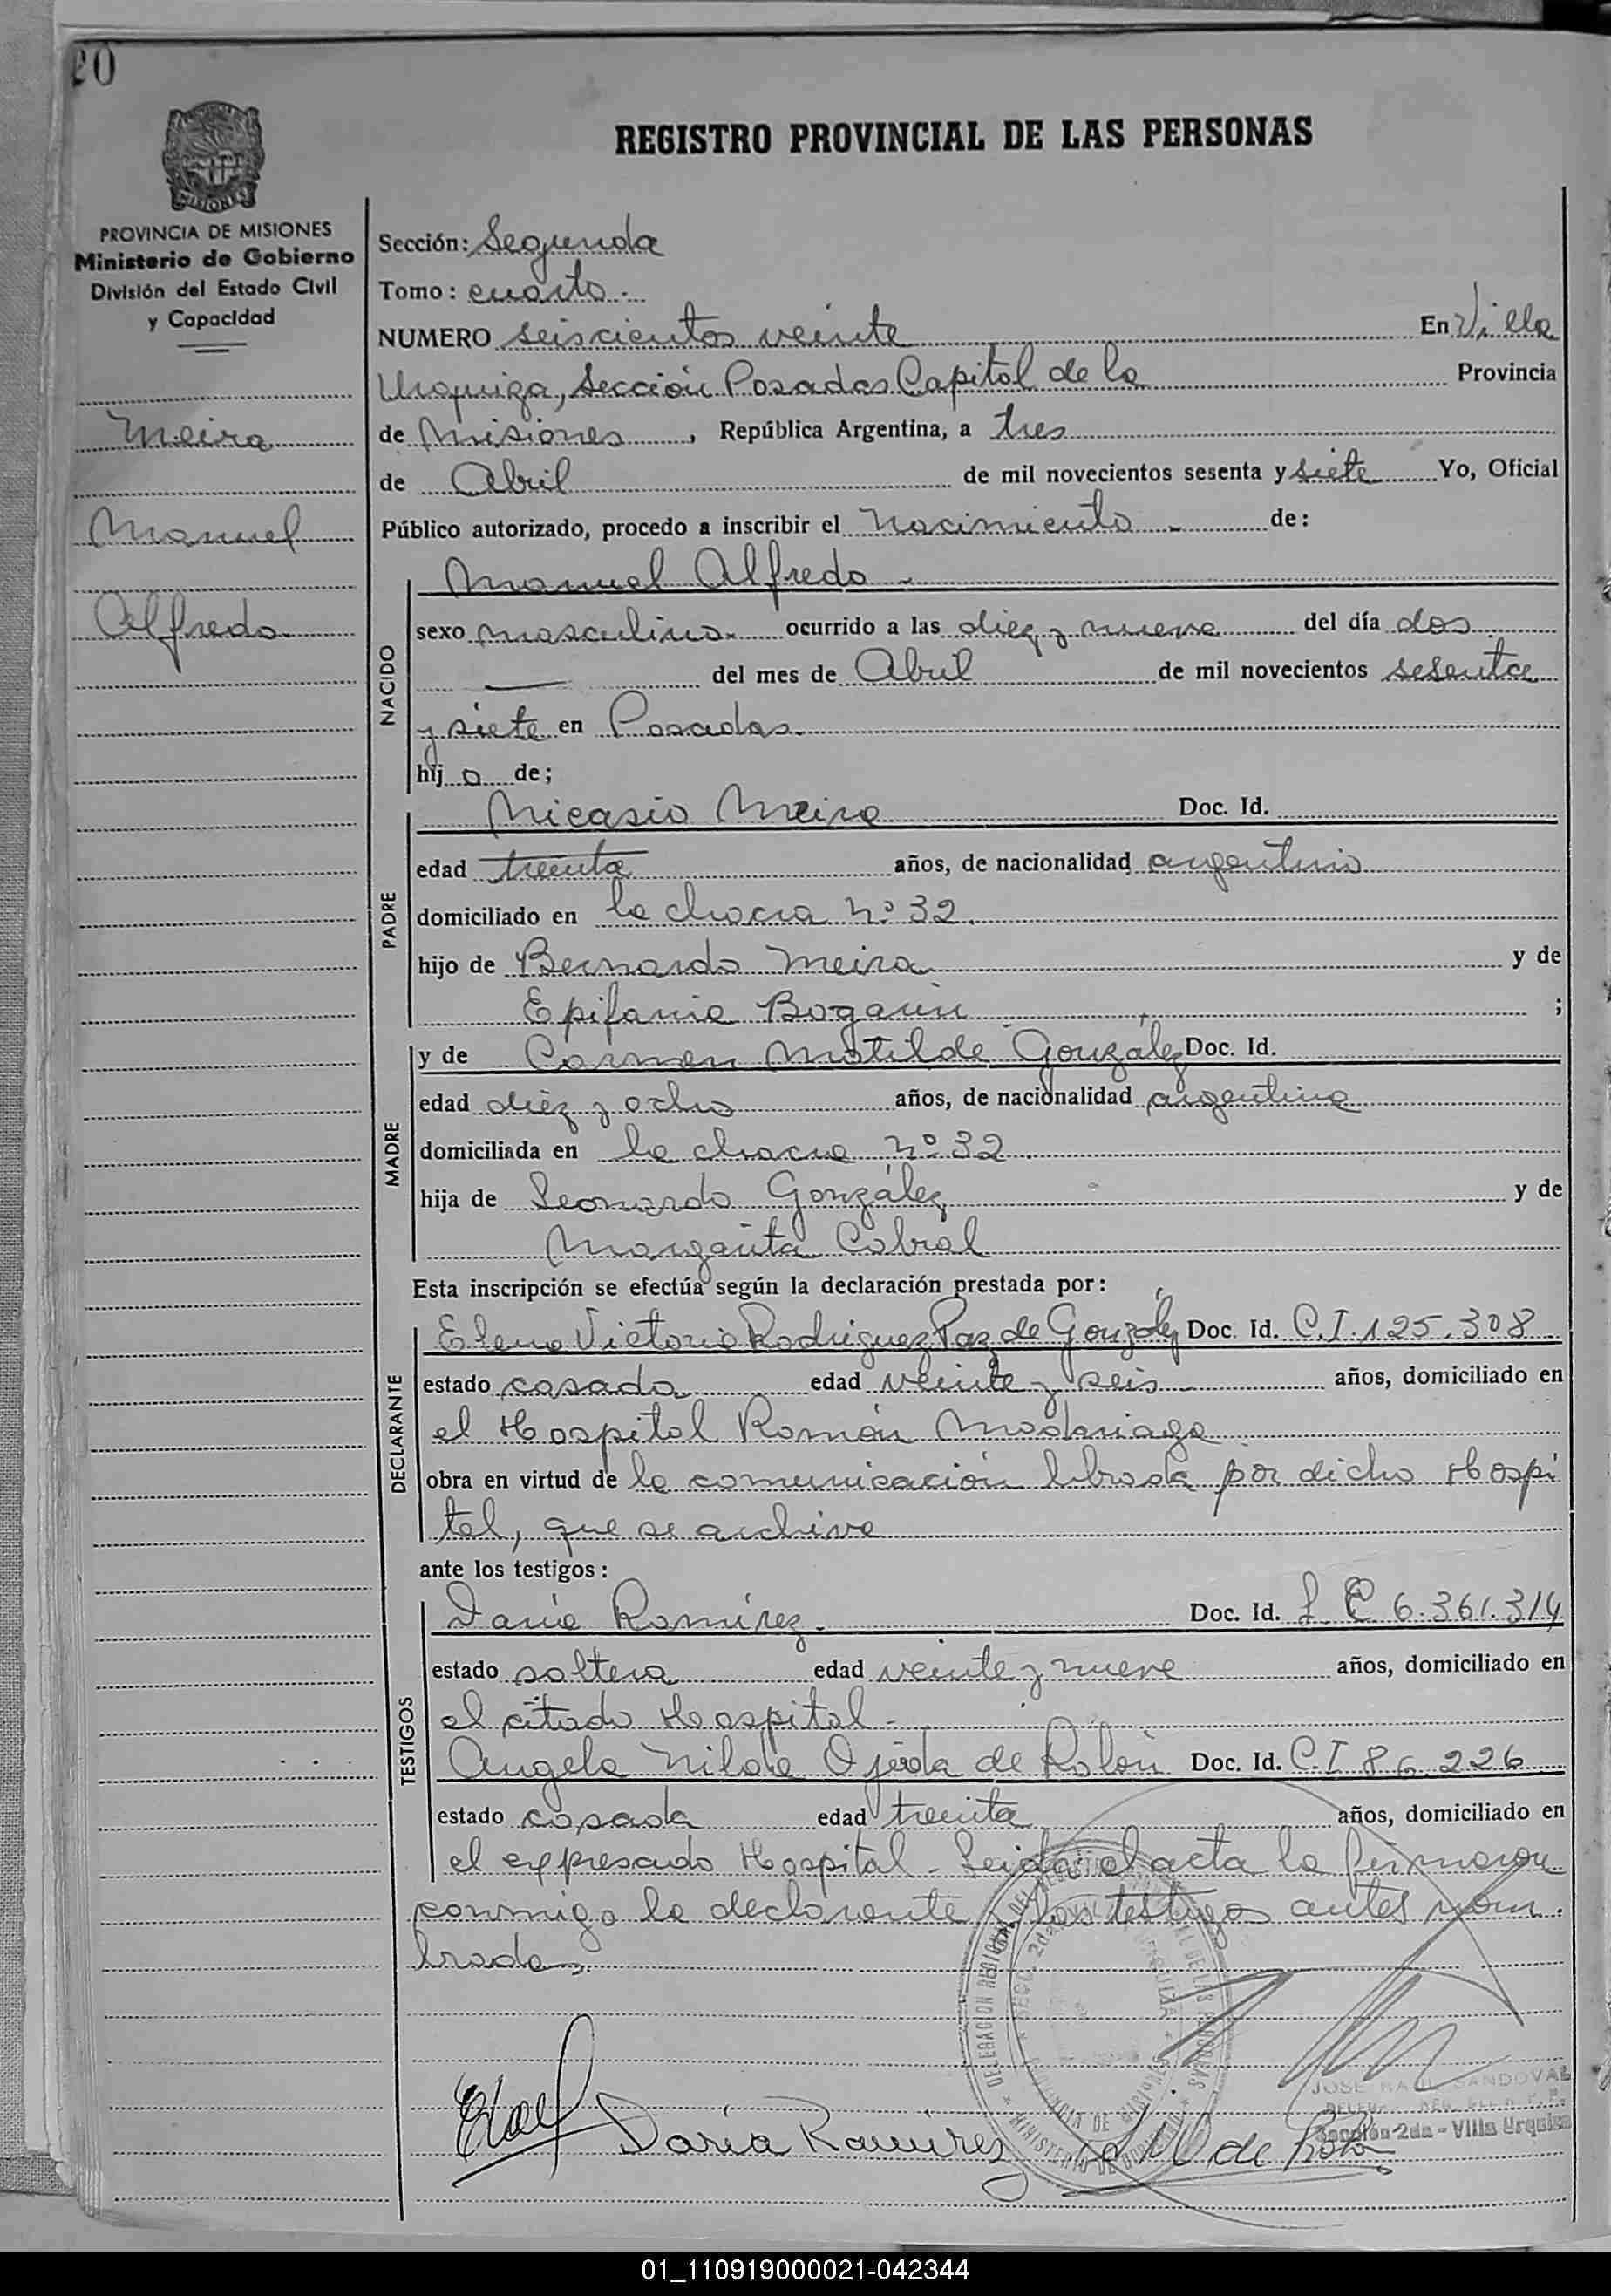 20
REGISTRO PROVINCIAL DE LAS PERSONAS
MISIONES
PROVINCIA DE MISIONES
Ministerio de Gobierno
División del Estado Civil
y Capacidad
Meira
Manuel
Alfredo
Sección: Segunda
Tomo: cuarto.
NUMERO seiscientos veinte En Villa
Urquiza, Sección Posadas Capital de la Provincia
de Misiones, República Argentina, a tres
de Abril de mil novecientos sesenta y siete Yo, Oficial
Público autorizado, procedo a inscribir el Nacimiento - de:
NACIDO
Manuel Alfredo -
sexo masculino. ocurrido a las diez y nueve del día dos
del mes de Abril de mil novecientos sesenta
y siete en Posadas.
hijo de;
PADRE
Nicasio Meira Doc. Id.
edad treinta años, de nacionalidad argentino
domiciliado en la chacra nº 32.
hijo de Bernardo Meira y de
Epifania Bogarin ;
MADRE
y de Carmen Matilde González Doc. Id.
edad diez y ocho años, de nacionalidad argentina
domiciliada en la chacra nº 32.
hija de Leonardo González y de
Margarita Cabral
Esta inscripción se efectúa según la declaración prestada por:
DECLARANTE
Elena Victoria Rodriguez Paz de González Doc. Id. C.I. 125.308
estado casada edad veinte y seis años, domiciliado en
el Hospital Román Madariaga
obra en virtud de la comunicación librada por dicho Hospi
tal, que se archiva
ante los testigos:
TESTIGOS
Daria Ramírez. Doc. Id. L C 6.361.314
estado soltera edad veinte y nueve años, domiciliado en
el citado Hospital -
Angela Nilda Ojeda de Rolón Doc. Id. C.I 86.226
estado casada edad treinta años, domiciliado en
el expresado Hospital - Leida el acta la firmaron
conmigo la declarante y los testigos antes nom.
brados.
Daria Ramirez
de Rolon
JOSE RAUL SANDOVAL
Sección 2da - Villa Urquiza
01_110919000021-042344